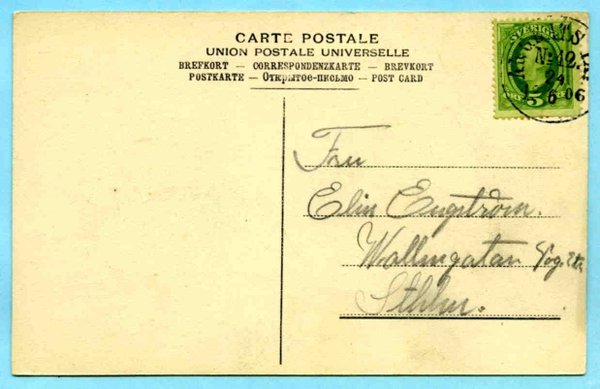 CARTE POSTALE
UNION POSTALE UNIVERSELLE
BREFKORT — CORRESPONDENZKARTE — BREVKORT
POSTKARTE — Открытое-письмо — POST CARD
SVERIGE
5
No 12.
24
6 06
Fru
Elin Engström.
Wallingatan
Sthlm.